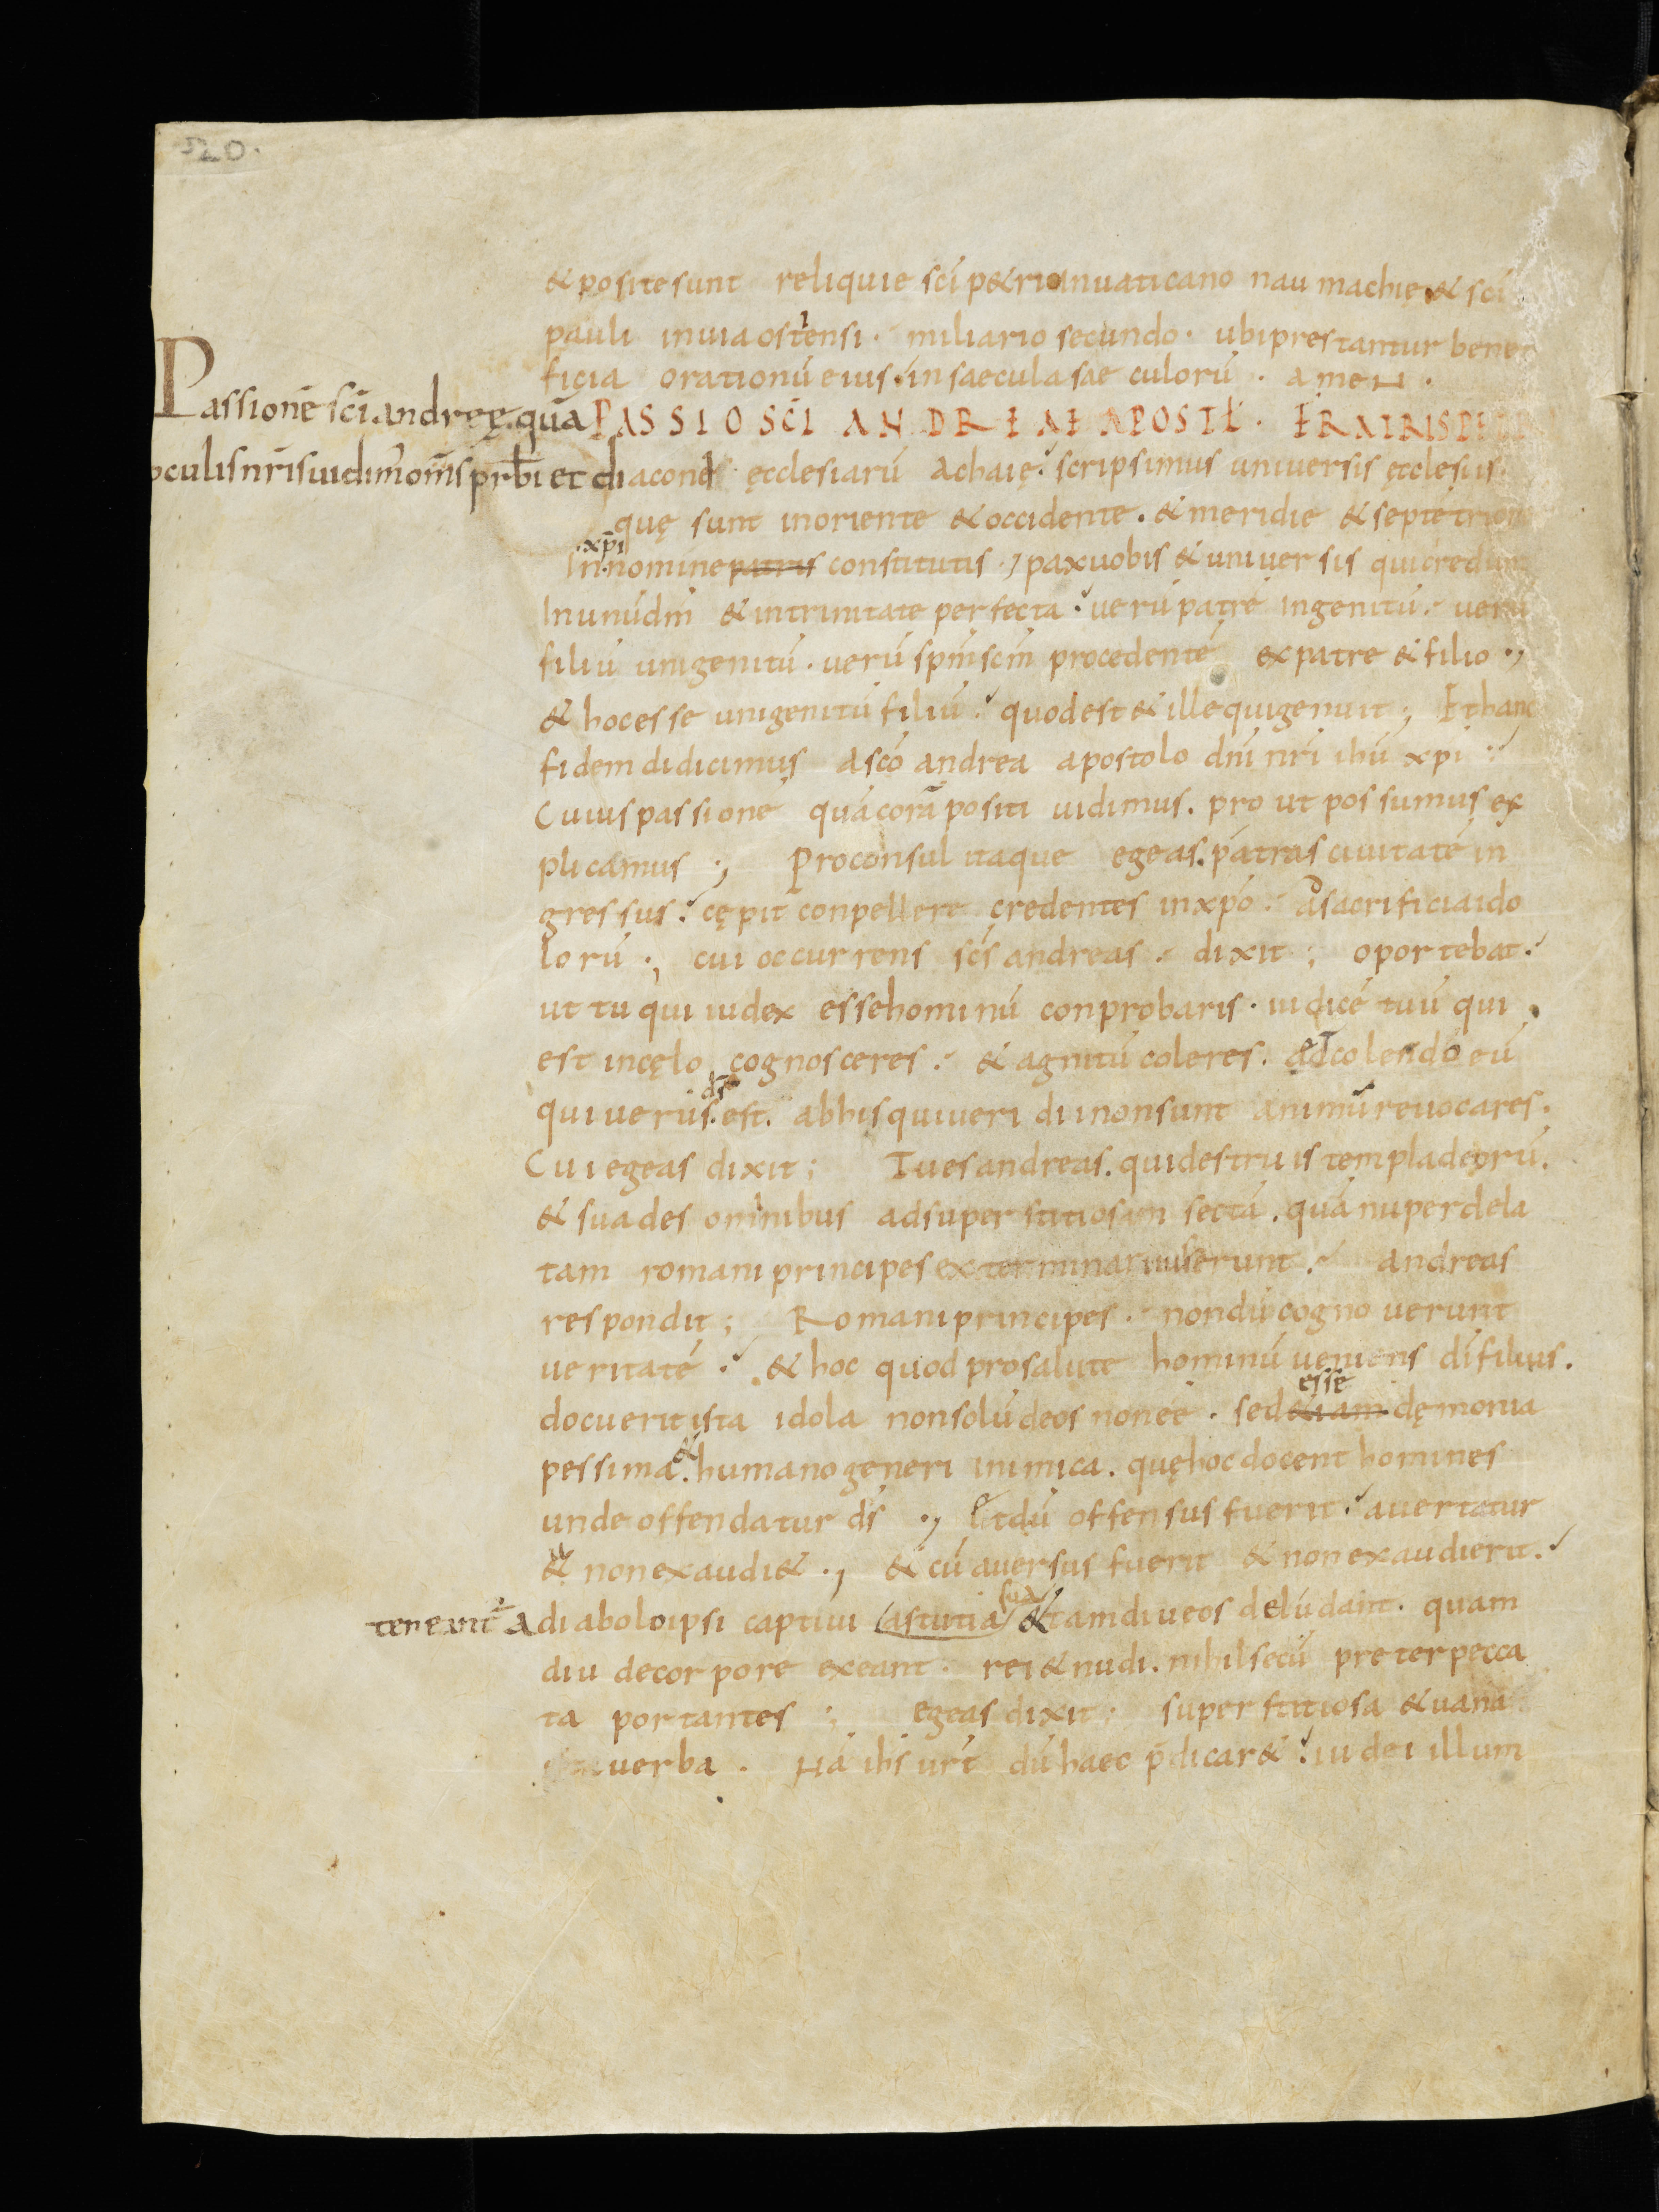 520.
& posite sunt reliquie sci p&ri in uaticano naumachię & sci
pauli in uia ostensi · miliario secundo · ubi prestantur bene
ficia orationū eius · in saecula saeculorū · amen ·
Passionē sci andreę quā PASSIO SCI ANDREAE APOSTL · FRATRIS
oculis nr̄is uidim' om̄s prb̄i et diacon ęcclesiarū achaię scripsimus uniuersis ęcclesiis
quę sunt in oriente & occidente · & meridie & septētrion
xp̄i
In nomine patris constitutis ·, pax uobis & uniuersis qui credunt
In unū dm̄ & in trinitate perfecta · uerū patrē ingenitū · uerū
filiū unigenitū · uerū spm̄ scm̄ procedentē ex patre & filio ·,
& hoc esse unigenitū filiū · quod est & ille qui genuit ; Et hanc
fidem didicimus a scō andrea apostolo dn̄i nr̄i ihū xp̄i
Cuius passionē quā corā positi uidimus · prout possumus ex
plicamus ·, Proconsul itaque egeas · patras ciuitatē in
gressus · cępit conpellere credentes in xp̄o · a sacrificia ido
lorū ·, cui occurrens scs̄ andreas · dixit ; oportebat ·
ut tu qui iudex esse hominū conprobaris · iudicē tuū qui
est in cęlo cognosceres · & agnitū coleres · et colendo eū
ds̄
qui uerus · est · ab his qui ueri dii non sunt animū reuocares ·
Cui egeas dixit ; Tu es andreas · qui destruis templa deorū ·
& suades omnibus ad superstitiosam sectā · quā nuper dela
tam romani principes exterminari iusserunt · andreas
respondit ; Romani principes · nondū cognouerunt
ueritatē · & hoc quod pro salute hominū ueniens dī filius ·
esse
docuerit ista idola non solū deos non eē · sed &iam dęmonia
&
pessima · humano generi inimica · quę hoc docent homines
unde offendatur ds̄ ·, Et dū offensus fuerit · auertatur
& non exaudi& ·, & cū auersus fuerit & non exaudierit ·
sua
a diabolo ipsi captiui astutia & tamdiu eos deludant · quam
diu de corpore exeant · rei & nudi · nihil secū preter pecca
ta portantes ; egeas dixit · superstitiosa & uana
uerba · Nā ihs ur̄ dū haec p̄dicar& · iudei illum